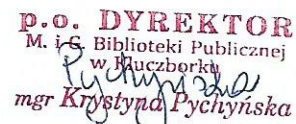 p.o. DYREKTOR
M. i G. Biblioteki Publicznej
w Kluczborku
mgr Krystyna Pychyńska